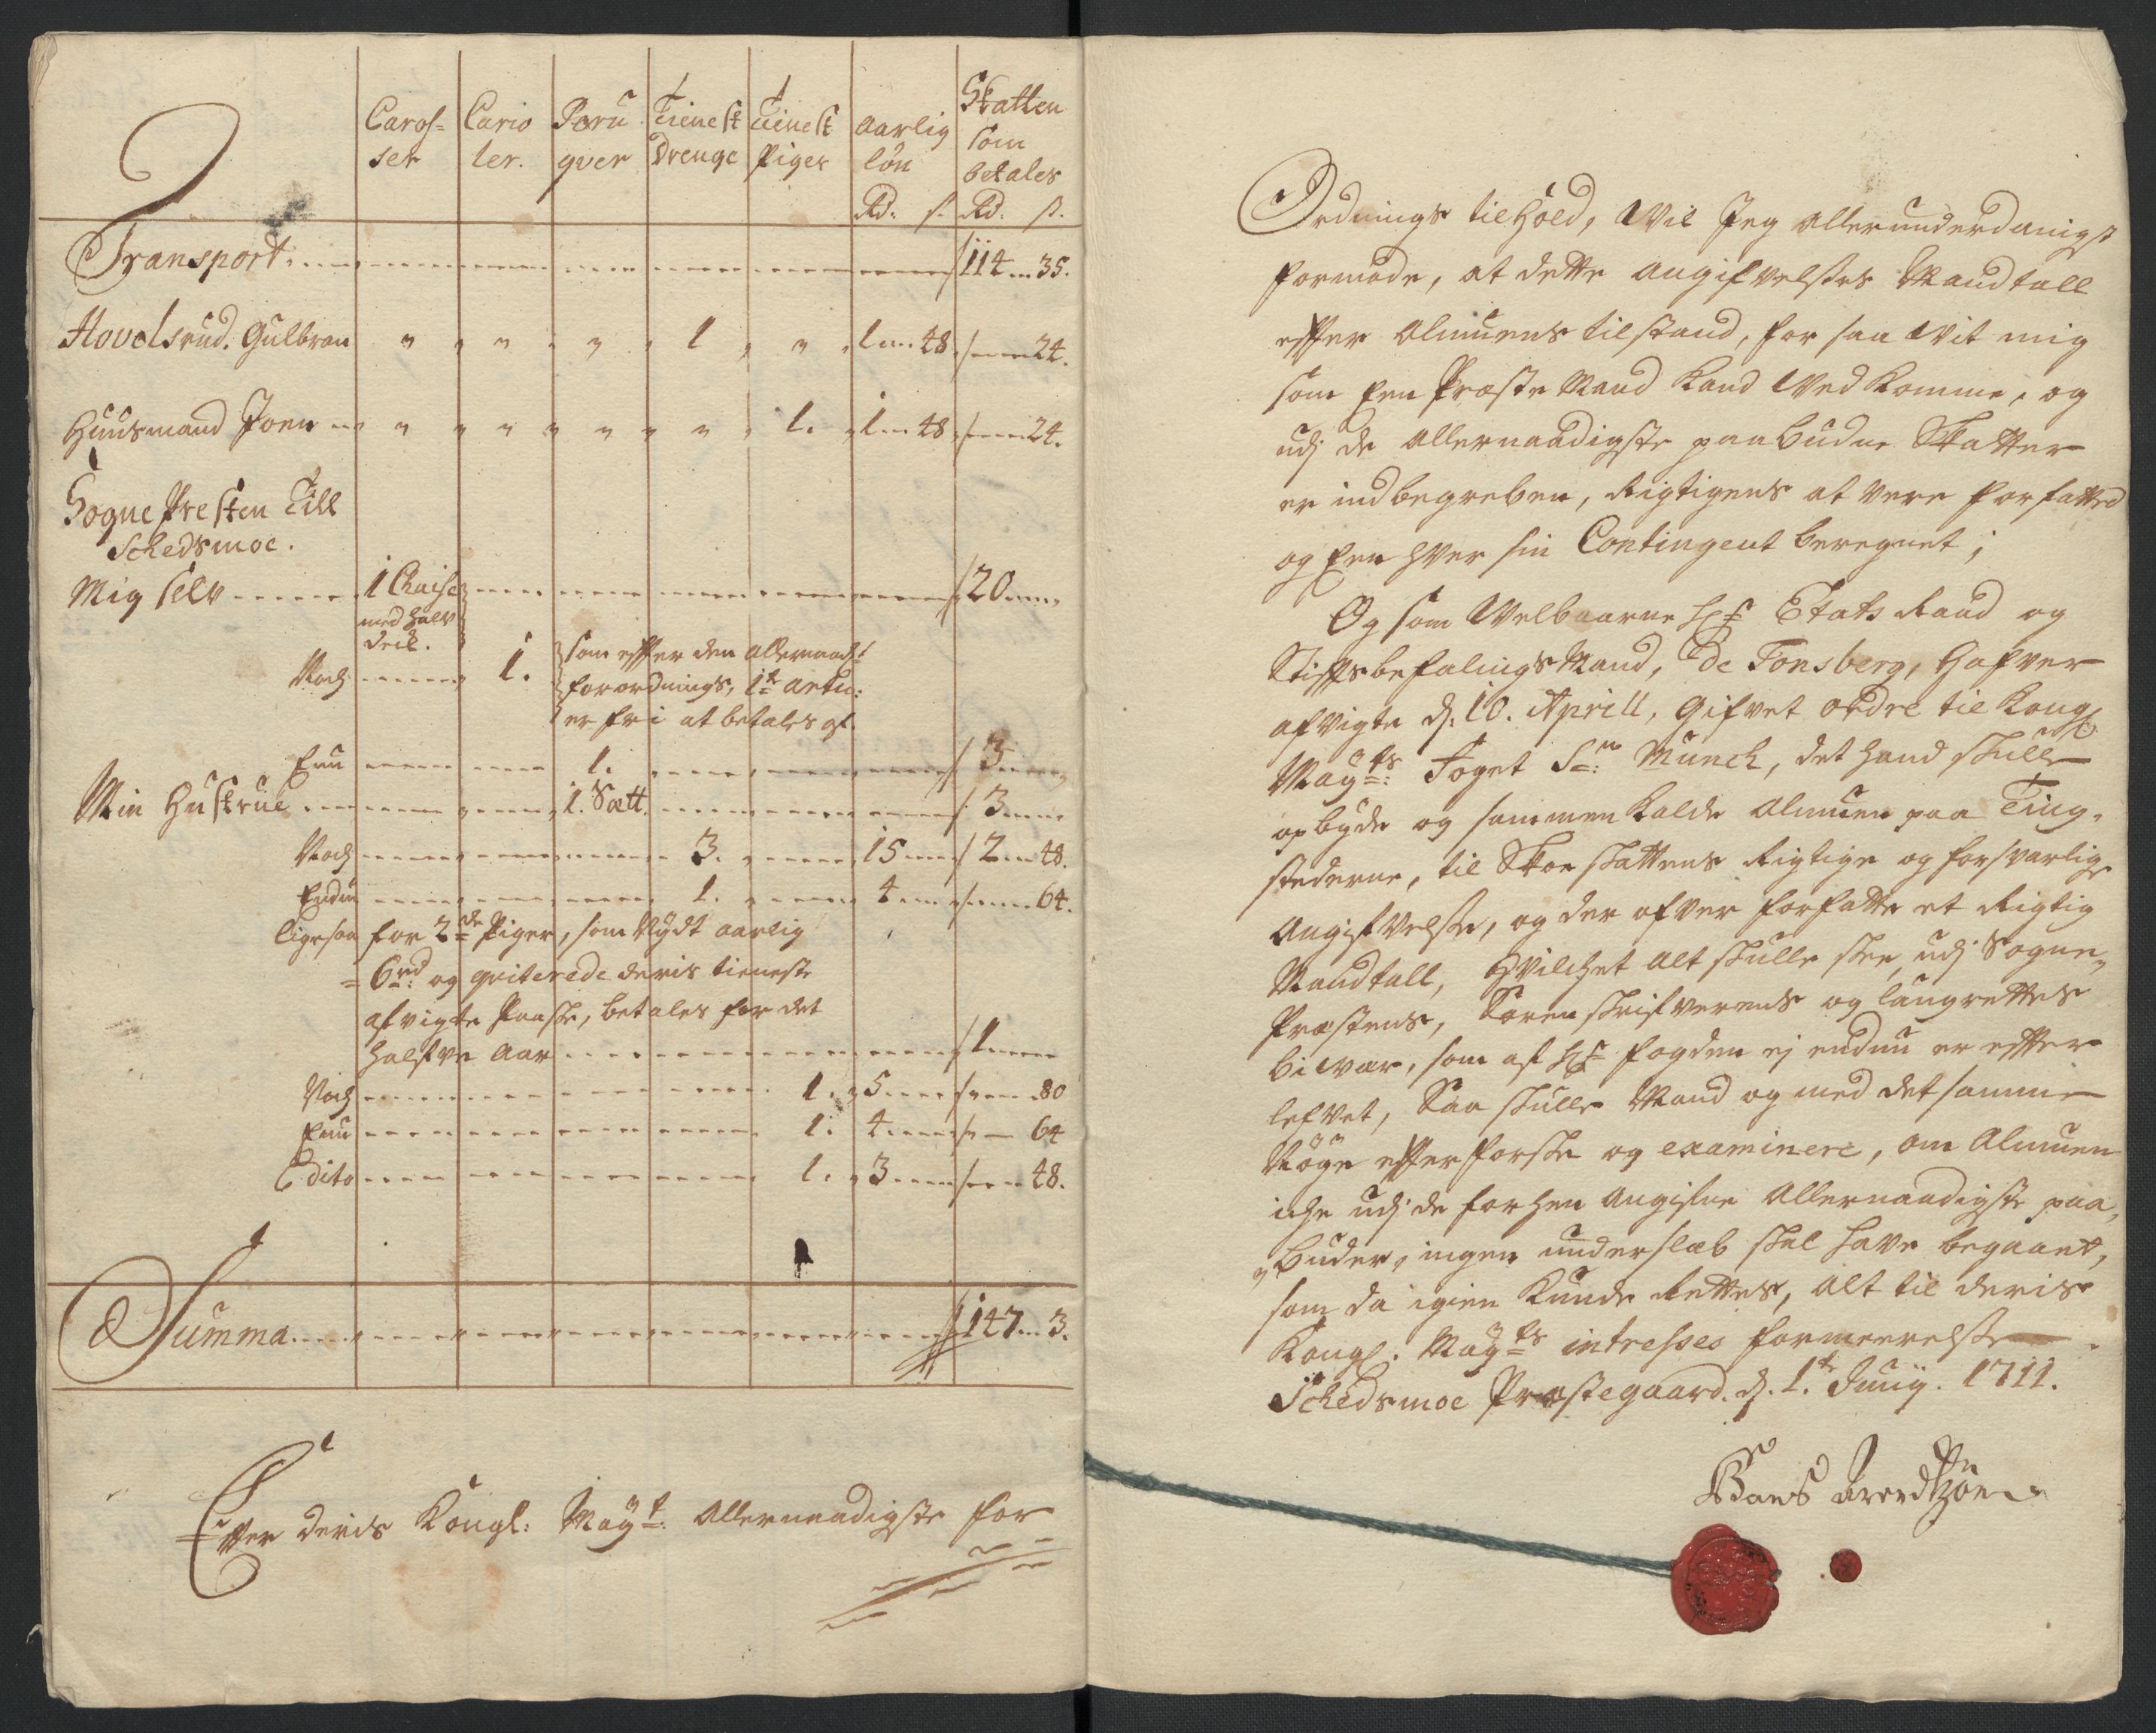 Caros= Cario Peru Tienest Tienest Aarlig Skatten
ser ler. qver Drenge Piger løn som
betales
Rd: s. Rd: s.
Transport. 114 35.
Hovelsrud. Gulbran " " " 1 " 1 48 24.
Huusmand Joen " " " " 1. 1 48 24.
Sogne Presten Till
Schedsmoe.
Mig selv 1 Chaise 20
med halv
deel.
Noch 1. som effter den allernaadt
forordnings, 1te Artic:
er fri at betales af.
Enu 1. 3
Min Hustrue 1. Sætt. 3
Noch 3. 15 2 48.
Endnu 1. 4 64.
ligesaa for 2de Piger, som Nydt aarlig
6rd: og qviterede deris tieneste
afvigte Paaske, betales for det
halfve Aar 1
Noch 1. 5 80
Enu 1. 4 64
Dito 1. 3 48.
Summa. 147 3.
Effter deris Kongl: Mayt: Allernaadigste for
Ordnings tilhold, Vil Jeg allerunderdanigst
formode, at dette angifvelses Mandtall
effter Almuens tilstand, for saa vit mig
som Een Præste Mand kand ved komme, og
udj de allernaadigste paabudne Skatter
er indbegreben, Rigtigens at vere forfatted
og Een hver sin Contingent beregnet;
Og som Velbaarne Hr Etats Raad og
Stiftsbefalings Mand, De Tonsberg, hafver
afvigte d: 10. Aprill, Gifvet ordre til Kongl.
Mayts: Foget Sr: Munch, det hand skulle
opbyde og sammenkalde Almuen paa Ting,
stederne, til Skoe skattens Rigtige og forsvarlige
Angifvelse, og der ofver forfatte et Rigtig
Mandtall, Hvilchet alt skulle skee udj Sogne,,
Præstens, Sorenskrifverens og laugrettes
bivær, som af Hr fogden ej endnu er effter
lefvet, Saa skulle Mand og med det samme
Nøye effterforske og examinere, om Almuen
iche udj de forhen angifne Allernaadigste paa,
,,buder, ingen underslæb skal have begaaet,
som da igien kunde Rettes, alt til deris
Kongl. Mayts intresses formeerelse.
Schedsmoe Præstegaard. d. 1te Junij. 1711.